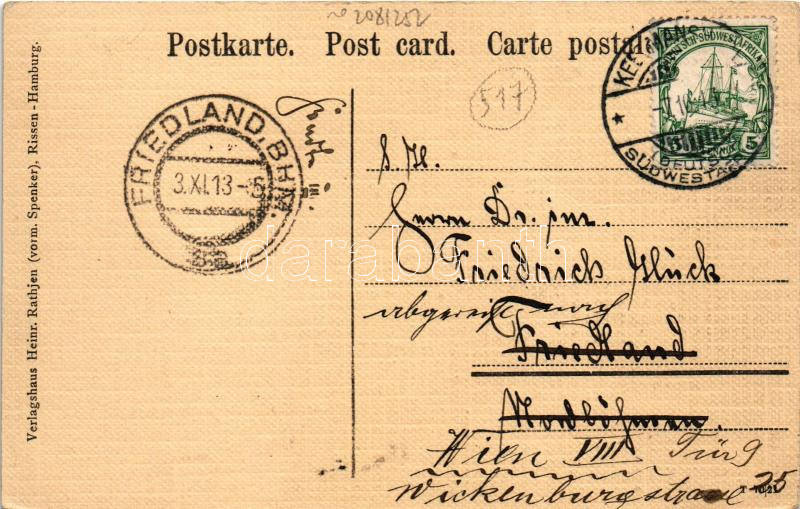 2081252
Postkarte. Post card. Carte postale
517
KEETMANSHOOP
DEUTSCH-
SÜDWESTAFRIKA
DEUTSCH-SÜDWESTAFRIKA
5
FRIEDLAND, BHM.
3.XI.13-5
S. H.
Herrn Dr. jur.
Friedrich Glück
abgereist nach
Friedland
Nordböhmen.
Wien VIII Tür 9
Wickenburgstrasse 25
darabanth
Verlagshaus Heinr. Rathjen (vorm. Spenker), Rissen-Hamburg.